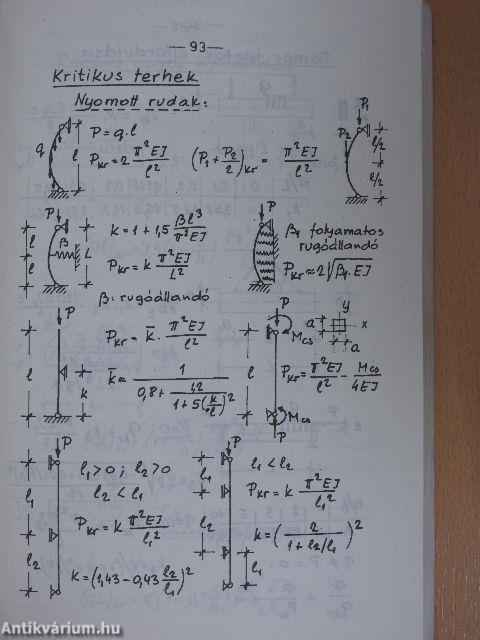 — 93 —
Kritikus terhek
Nyomott rudak:
q
l
P = q·l
P_kr = 2 π²EJ / l²
(P₁ + P₂/2)_kr = π²EJ / l²
P₁
P₂
l/2
l/2
P
l
l
β
L
k = 1 + 1,5 βl³ / π²EJ
P_kr = k π²EJ / L²
β: rugóállandó
P
β₁ folyamatos
rugóállandó
P_kr ≈ 2√β₁·EJ
P
l
k
P_kr = k̄ · π²EJ / l²
k̄ ≈ 1 / (0,8 + 1,2 / (1 + 5(k/l)²))
P
M_cs
l
M_cs
P
a
y
x
a
P_kr = π²EJ / l² − M_cs / 4EJ
P
l₁
l₁
l₂
l₁ > 0 ; l₂ > 0
l₂ < l₁
P_kr = k π²EJ / l₁²
k = (1,43 − 0,43 l₂/l₁)²
P
l₁
l₂
l₁
l₁ < l₂
P_kr = k π²EJ / l₁²
k = (2 / (1 + l₂/l₁))²
Antikvárium.hu